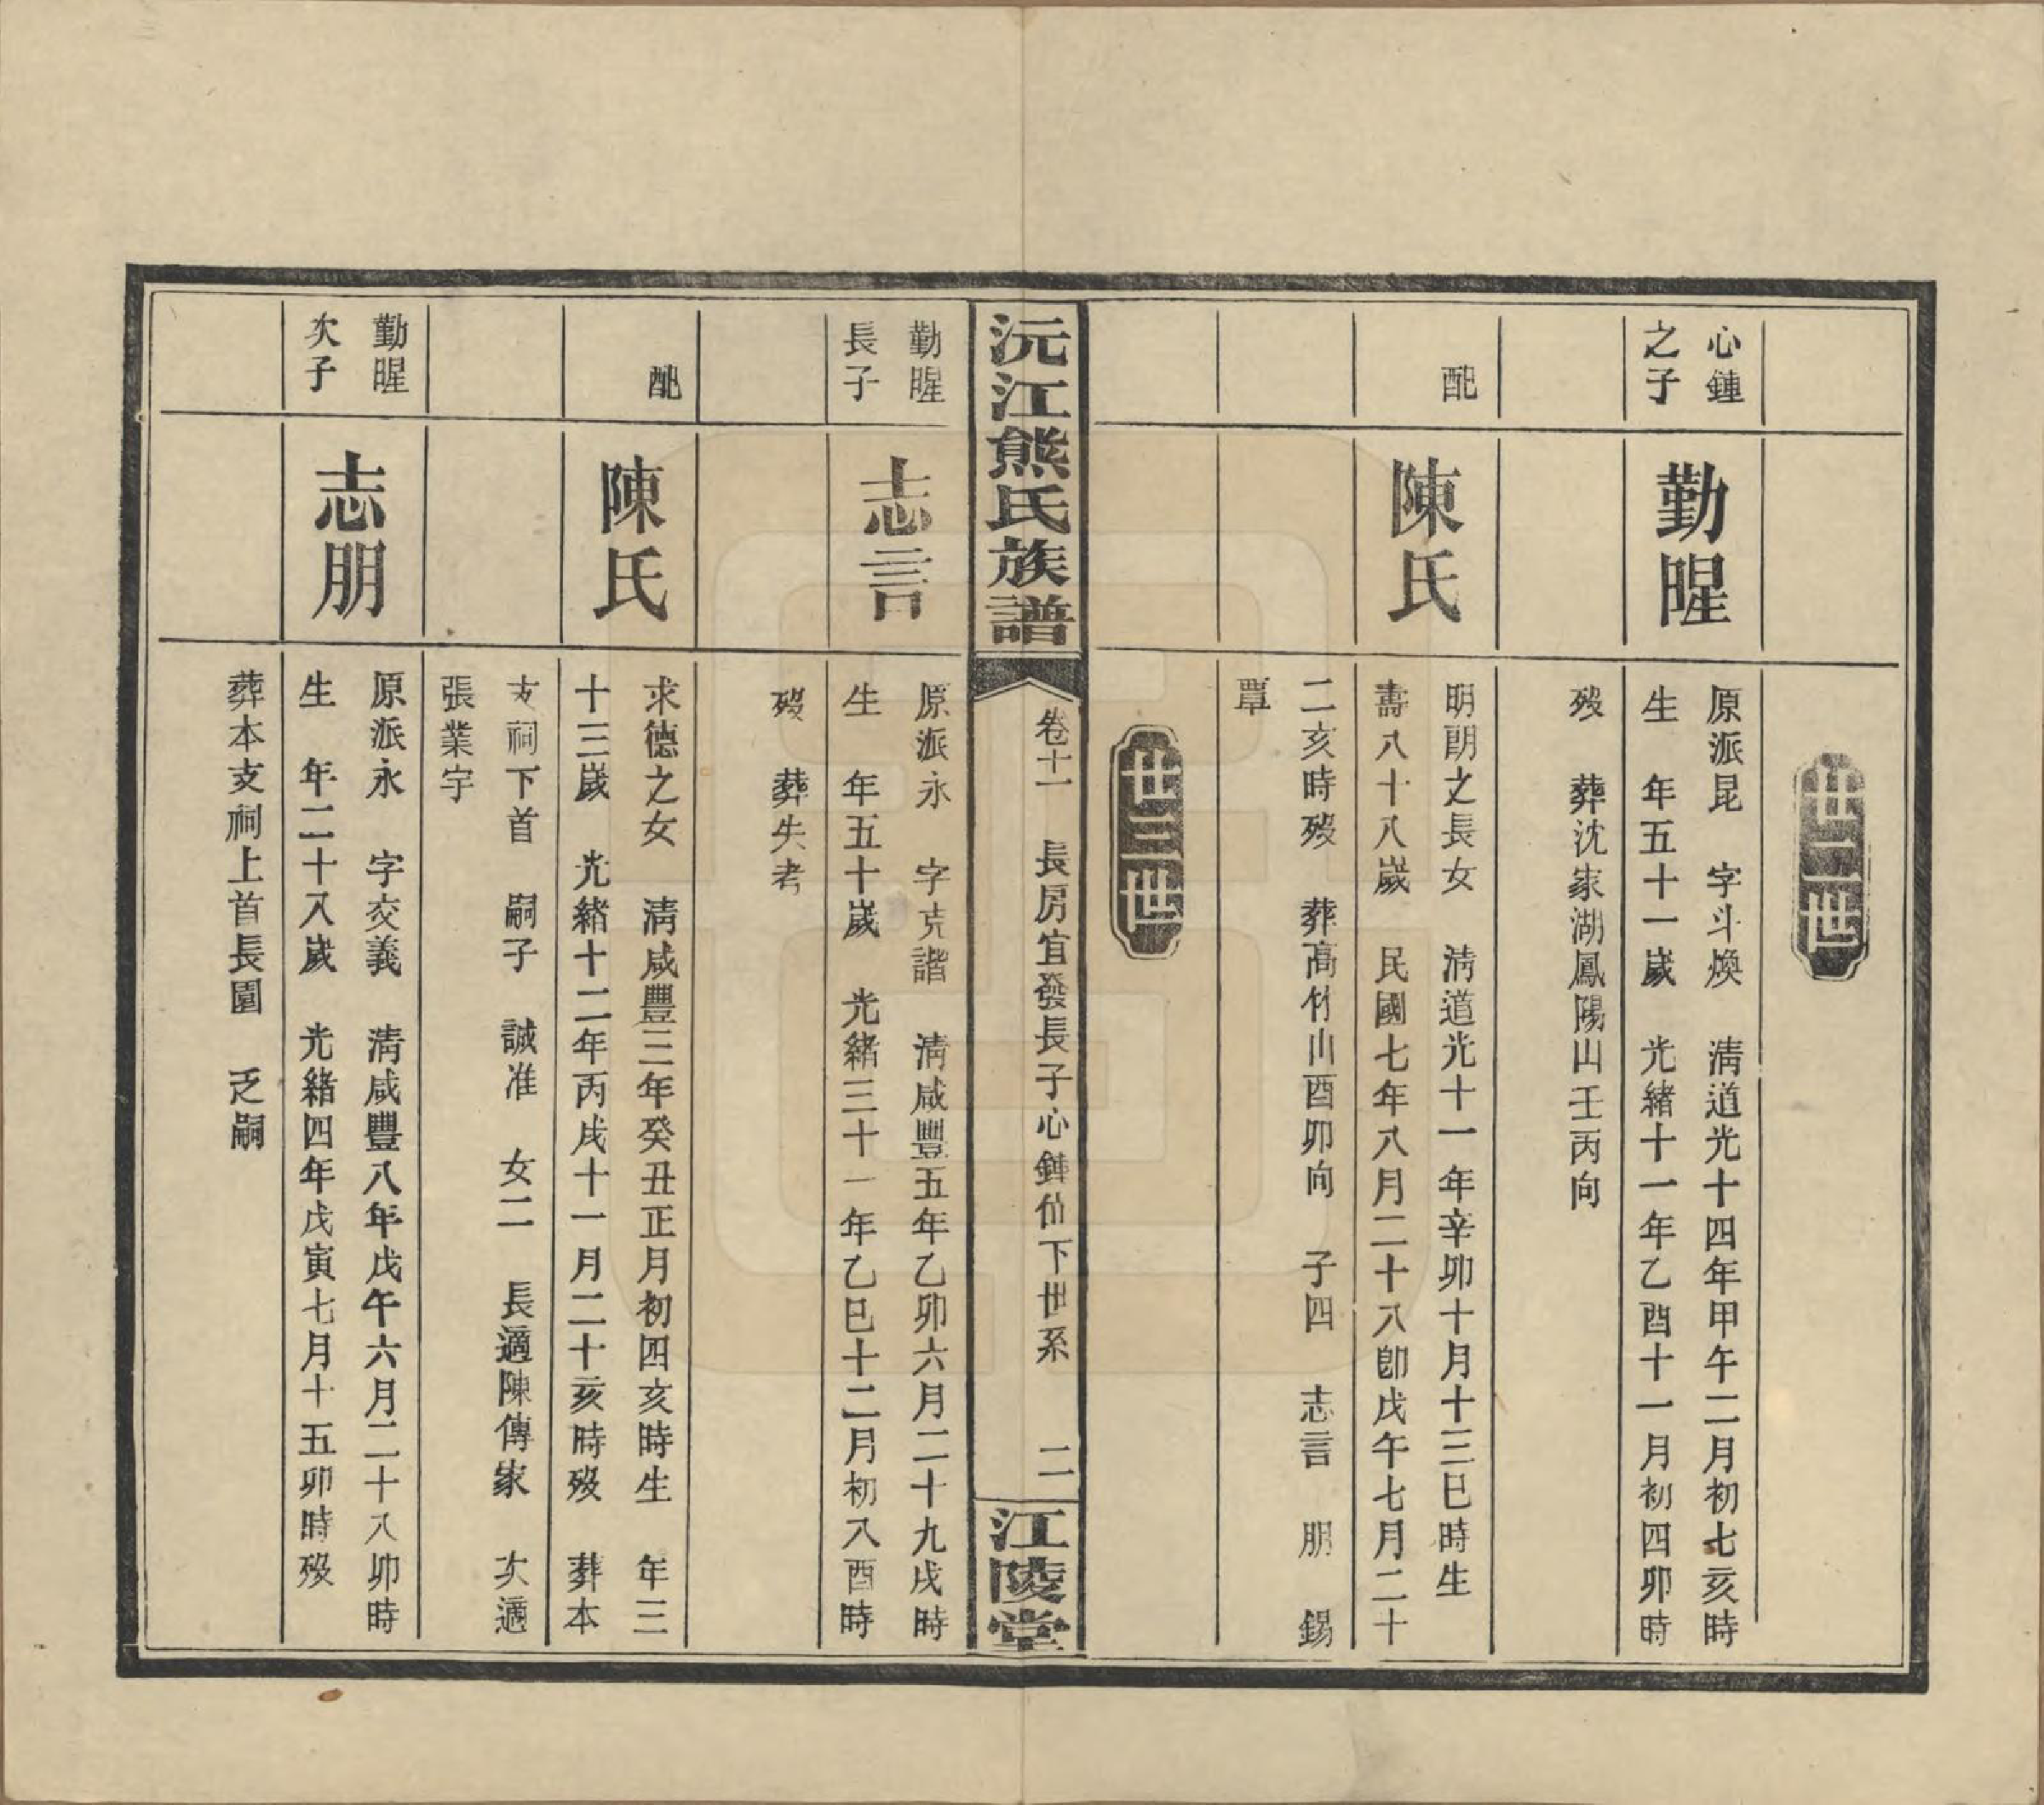 廿二世
心鍾
之子
勤暒
原派昆　字斗煥　清道光十四年甲午二月初七亥時
生　年五十一歲　光緒十一年乙酉十一月初四卯時
歿　葬沈家湖鳳陽山壬丙向
配
陳氏
明朗之長女　清道光十一年辛卯十月十三巳時生
壽八十八歲　民國七年八月二十八卽戊午七月二十
二亥時歿　葬高竹山酉卯向　子四　志言　朋　錫
覃
廿三世
沅江熊氏族譜
卷十一　長房宜發長子心鍾仙下世系　二
江陵堂
勤暒
長子
志言
原派永　字克諧　清咸豐五年乙卯六月二十九戌時
生　年五十歲　光緒三十一年乙巳十二月初八酉時
歿　葬失考
配
陳氏
求德之女　清咸豐三年癸丑正月初四亥時生　年三
十三歲　光緒十二年丙戌十一月二十亥時歿　葬本
支祠下首　嗣子　誠准　女二　長適陳傳家　次適
張業宇
勤暒
次子
志朋
原派永　字交義　清咸豐八年戊午六月二十八卯時
生　年二十八歲　光緒四年戊寅七月十五卯時歿
葬本支祠上首長園　乏嗣